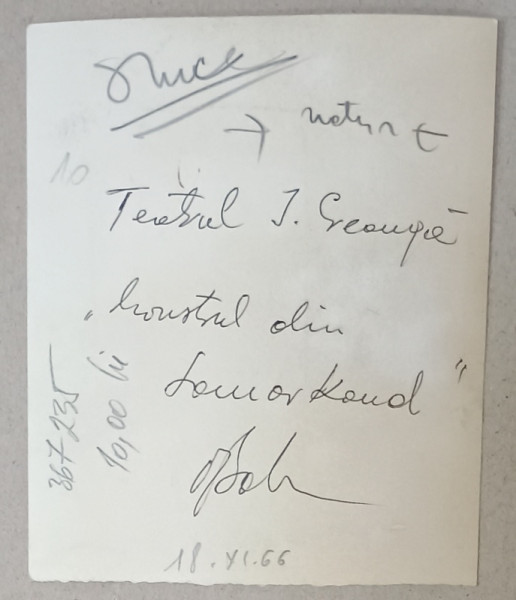 → natur ←
10
Teatrul I. Creangă
„Monstrul din
Samarkand"
367235
10,00 lei
18.XI.66